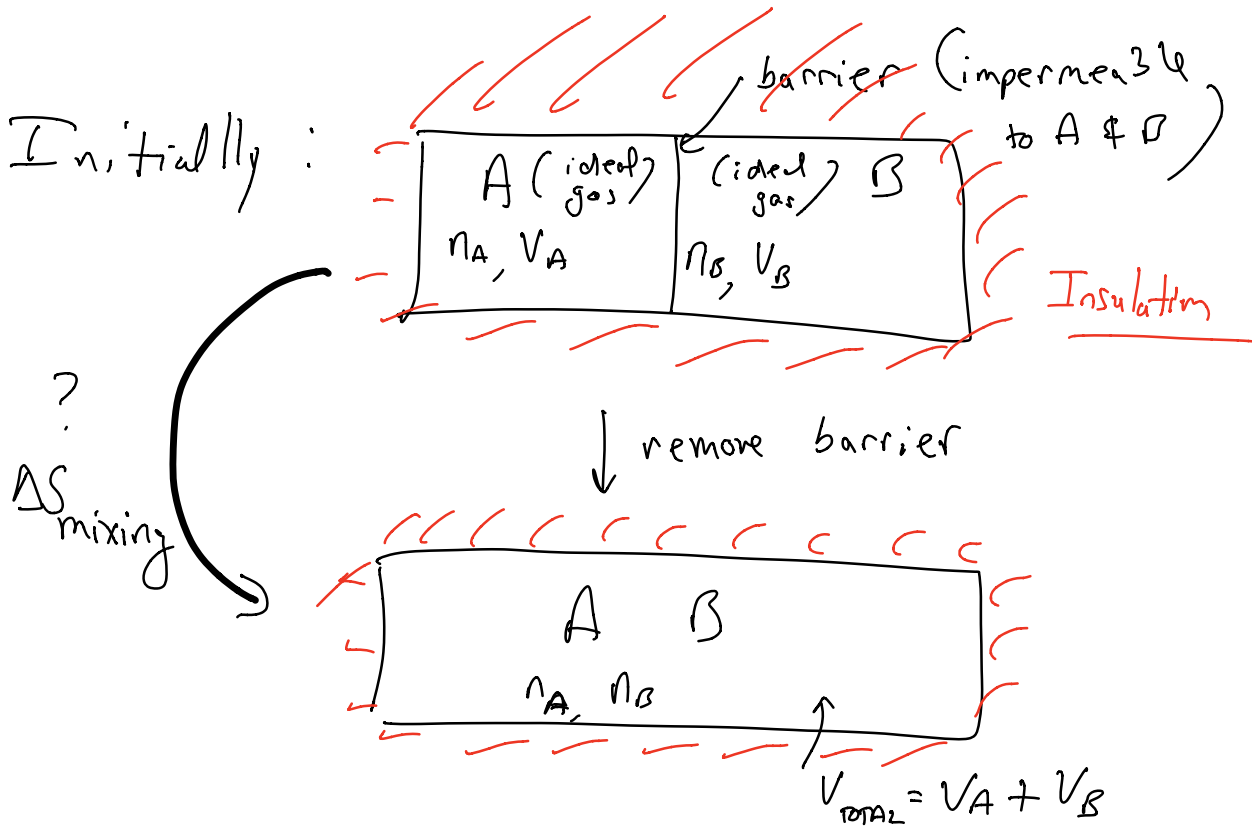 Initially :
barrier (impermeable
to A & B)
A (ideal gas)
(ideal gas) B
n_A, V_A
n_B, V_B
Insulation
?
ΔS_mixing
remove barrier
A B
n_A, n_B
V_TOTAL = V_A + V_B